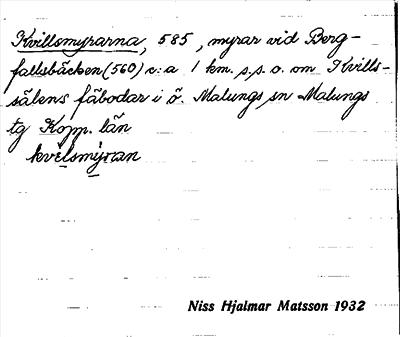 Kvillsmyrarna, 585, myrar vid Berg-
fallsbäcken (560) c:a 1 km. s.s.o. om Kvills-
sälens fäbodar i ö. Malungs sn Malungs
tg Kopp. län
kvilsmyran
Niss Hjalmar Matsson 1932